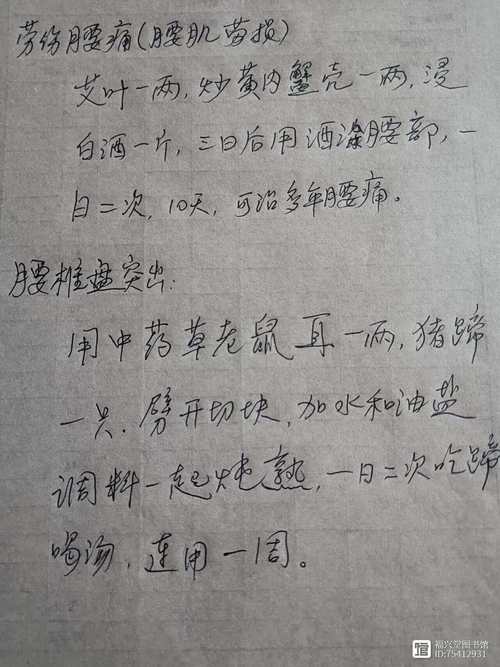 劳伤腰痛(腰肌劳损)
艾叶一两,炒黄内蟹壳一两,浸
白酒一斤,三日后用酒涂腰部,一
日二次,10天,可治多年腰痛。
腰椎盘突出:
用中药草老鼠耳一两,猪蹄
一只,劈开切块,加水和油盐
调料一起炖熟,一日二次吃蹄
喝汤,连用一周。
福兴堂图书馆
ID:75412931